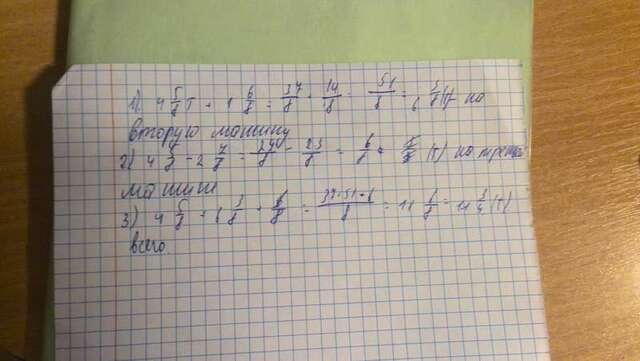 1) 4 5/8 т + 1 6/8 = 37/8 + 14/8 = 51/8 = 6 3/8 (т) на
вторую машину
2) 4 5/8 - 2 7/8 = - 23/8 = 6/8 (т) на
машине
3) 4 5/8 + 6 3/8 + 6/8 = 37+51+6/8 = 11 6/8 = 11 3/4 (т)
всего.